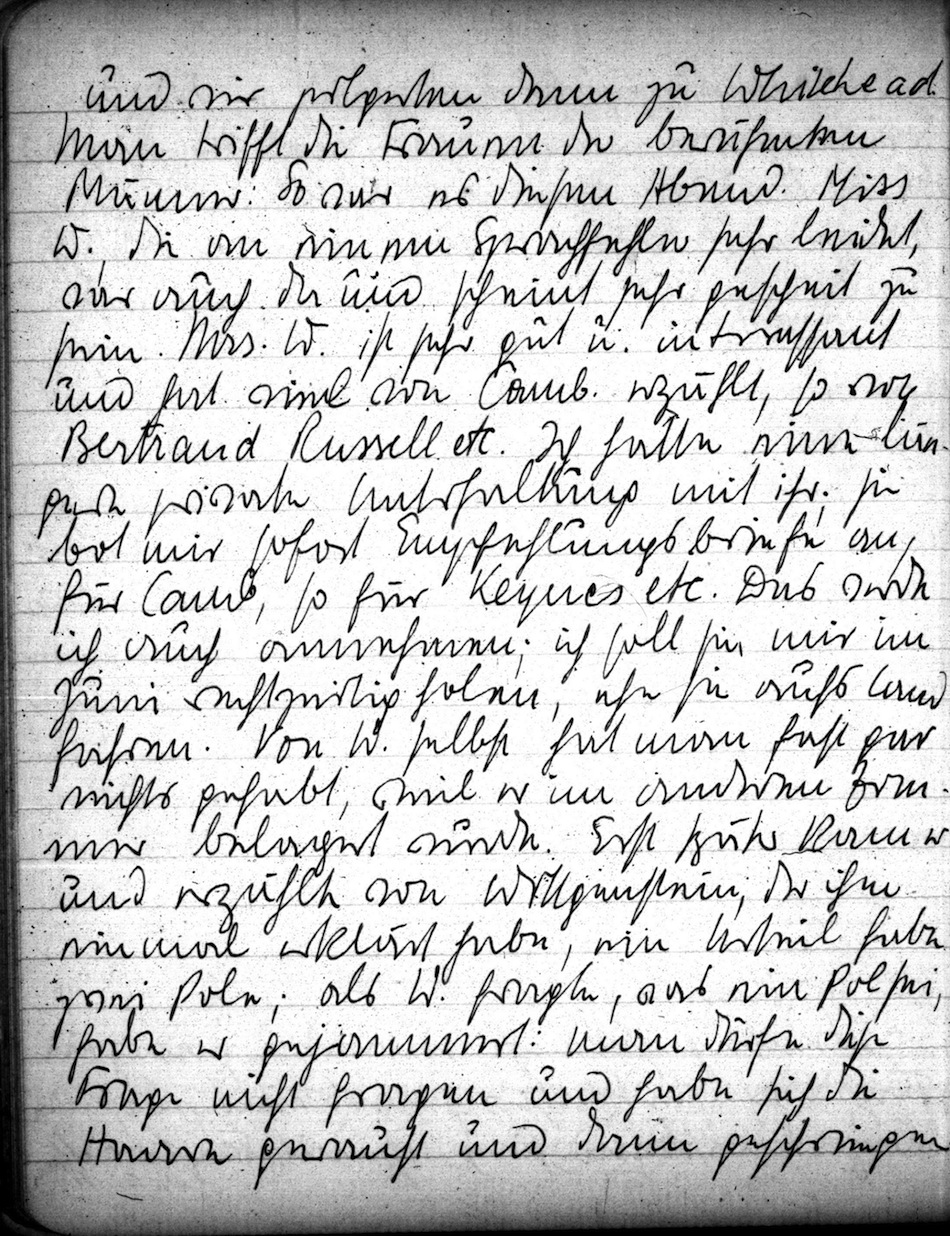 und wir folgerten dann zu Whitehead.
Man trifft die Frauen der berühmten
Männer: So war es diesen Abend. Miss
W., die an einem Sprachfehler sehr leidet,
war auch da und scheint sehr gescheit zu
sein. Mrs. W. ist sehr gut u. interessant
und hat viel von Camb. erzählt, so von
Bertrand Russell etc. Ich hatte eine län-
gere private Unterhaltung mit ihr; sie
bot mir sofort Empfehlungsbriefe an,
für Camb, so für Keynes etc. Das werde
ich auch annehmen; ich soll sie mir im
Juni rechtzeitig holen, ehe sie aufs Land
fahren. Von W. selbst hat man fast gar
nichts gehabt, weil er im anderen Zim-
mer belagert wurde. Erst später kam er
und erzählte von Wittgenstein, der ihm
einmal erklärt habe, ein Urteil habe
zwei Pole; als W. fragte, was ein Pol sei,
habe er gejammert: man dürfe diese
Frage nicht fragen und habe sich die
Haare gerauft und dann geschwiegen